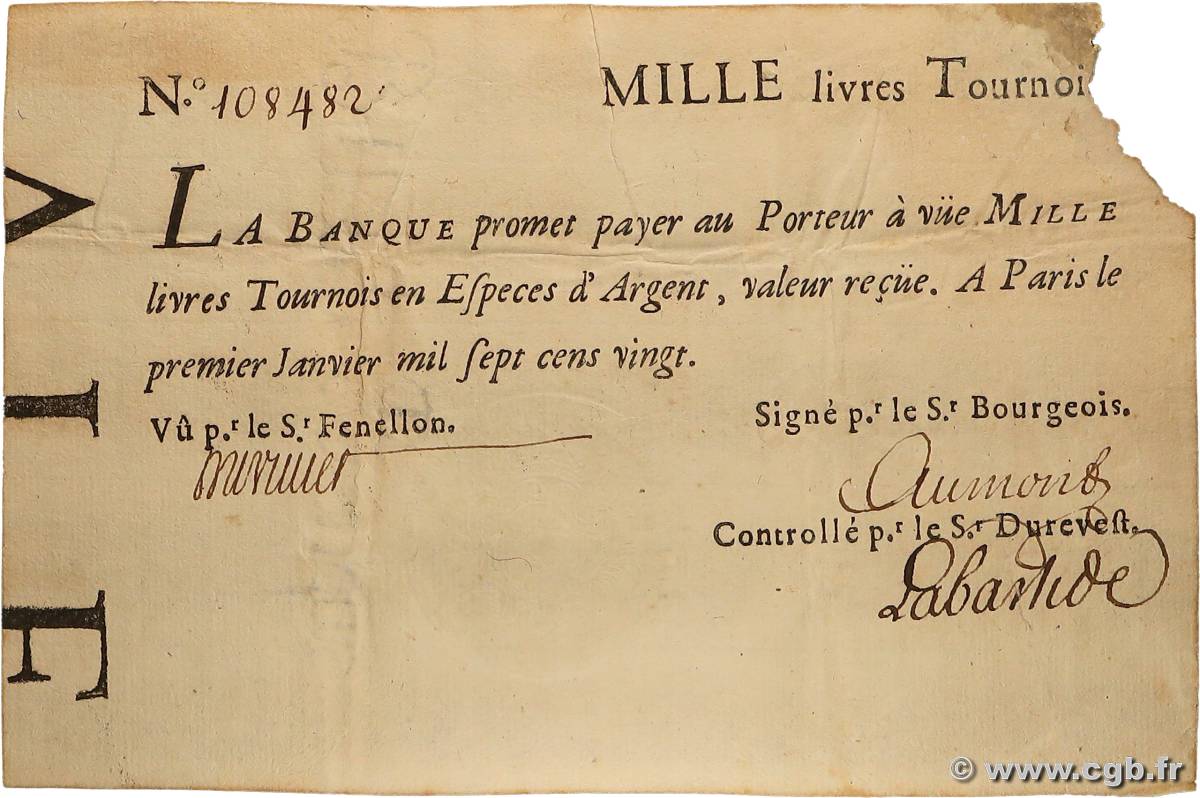 N.º 108482
MILLE livres Tournoi
LA BANQUE promet payer au Porteur à vüe MILLE
livres Tournois en Eſpeces d'Argent, valeur reçüe. A Paris le
premier Janvier mil ſept cens vingt.
Vû p.r le S.r Fenellon.
Signé p.r le S.r Bourgeois.
Aumont
Controllé p.r le S.r Dureveſt.
Labastide
V I E
© www.cgb.fr